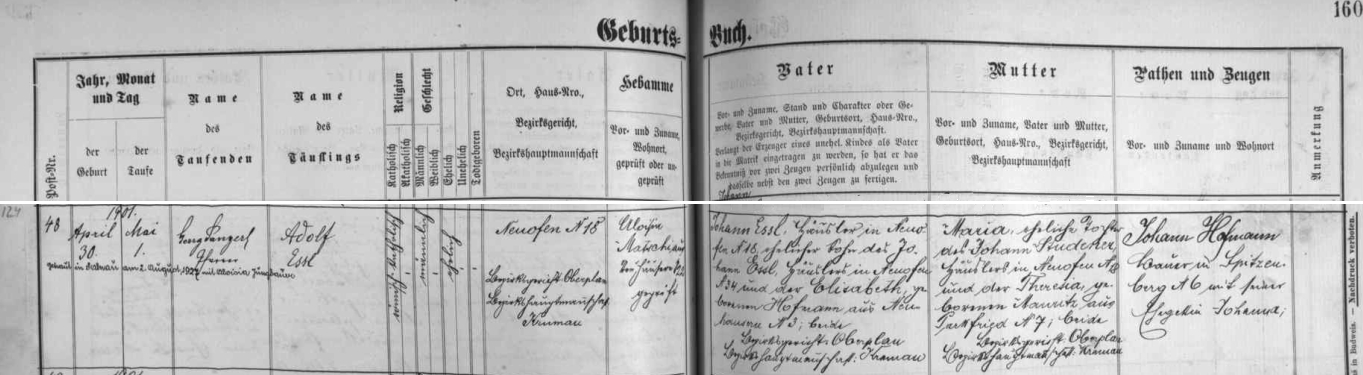 160
Geburts-Buch.
Jahr, Monat
und Tag
der
Geburt
der
Taufe
Post-Nr.
Name
des
Taufenden
Name
des
Täuflings
Religion
Katholisch
Akatholisch
Geschlecht
Männlich
Weiblich
Ehelich
Unehelich
Todtgeboren
Ort, Haus-Nro.,
Bezirksgericht,
Bezirkshauptmannschaft
Hebamme
Vor- und Zuname,
Wohnort,
geprüft oder un-
geprüft
Vater
Vor- und Zuname, Stand und Charakter oder Ge-
werbe, Vater und Mutter, Geburtsort, Haus-Nro.,
Bezirksgericht, Bezirkshauptmannschaft.
Verlangt der Erzeuger eines unehel. Kindes als Vater
in die Matrik eingetragen zu werden, so hat er das
Bekenntniß vor zwei Zeugen persönlich abzulegen und
dasselbe nebst den zwei Zeugen zu fertigen.
Mutter
Vor- und Zuname, Vater und Mutter,
Geburtsort, Haus-Nro., Bezirksgericht,
Bezirkshauptmannschaft
Pathen und Zeugen
Vor- und Zuname und Wohnort
Anmerkung
Johann
124
48
1901.
April
30.
Mai
1.
Georg
Adolf
Essl
getraut in am 2. August 1927 mit Aloisia Jungbauer
ehelich
Neuofen N 18
Bezirksgericht Oberplan
Bezirkshauptmannschaft
Krumau
Aloisia
geprüft
Johann Essl, Häusler in Neuo-
fen N 18, ehelicher Sohn des Jo-
hann Essl, Häuslers in Neuofen
N 34 und der Elisabeth, ge-
borenen Hofmann aus Neu-
hausen N 3; beide
Bezirksgericht Oberplan
Bezirkshauptmannschaft Krumau
Maria, eheliche Tochter
des Johann Studener,
Häuslers in Neuofen N
und der Theresia, ge-
borenen Mauritz aus
Parkfried N 7; beide
Bezirksgericht Oberplan
Bezirkshauptmannschaft Krumau
Johann Hofmann
Bauer in Spitzen-
berg N 6 mit seiner
Ehegattin Johanna;
in Budweis. — Nachdruck verboten.